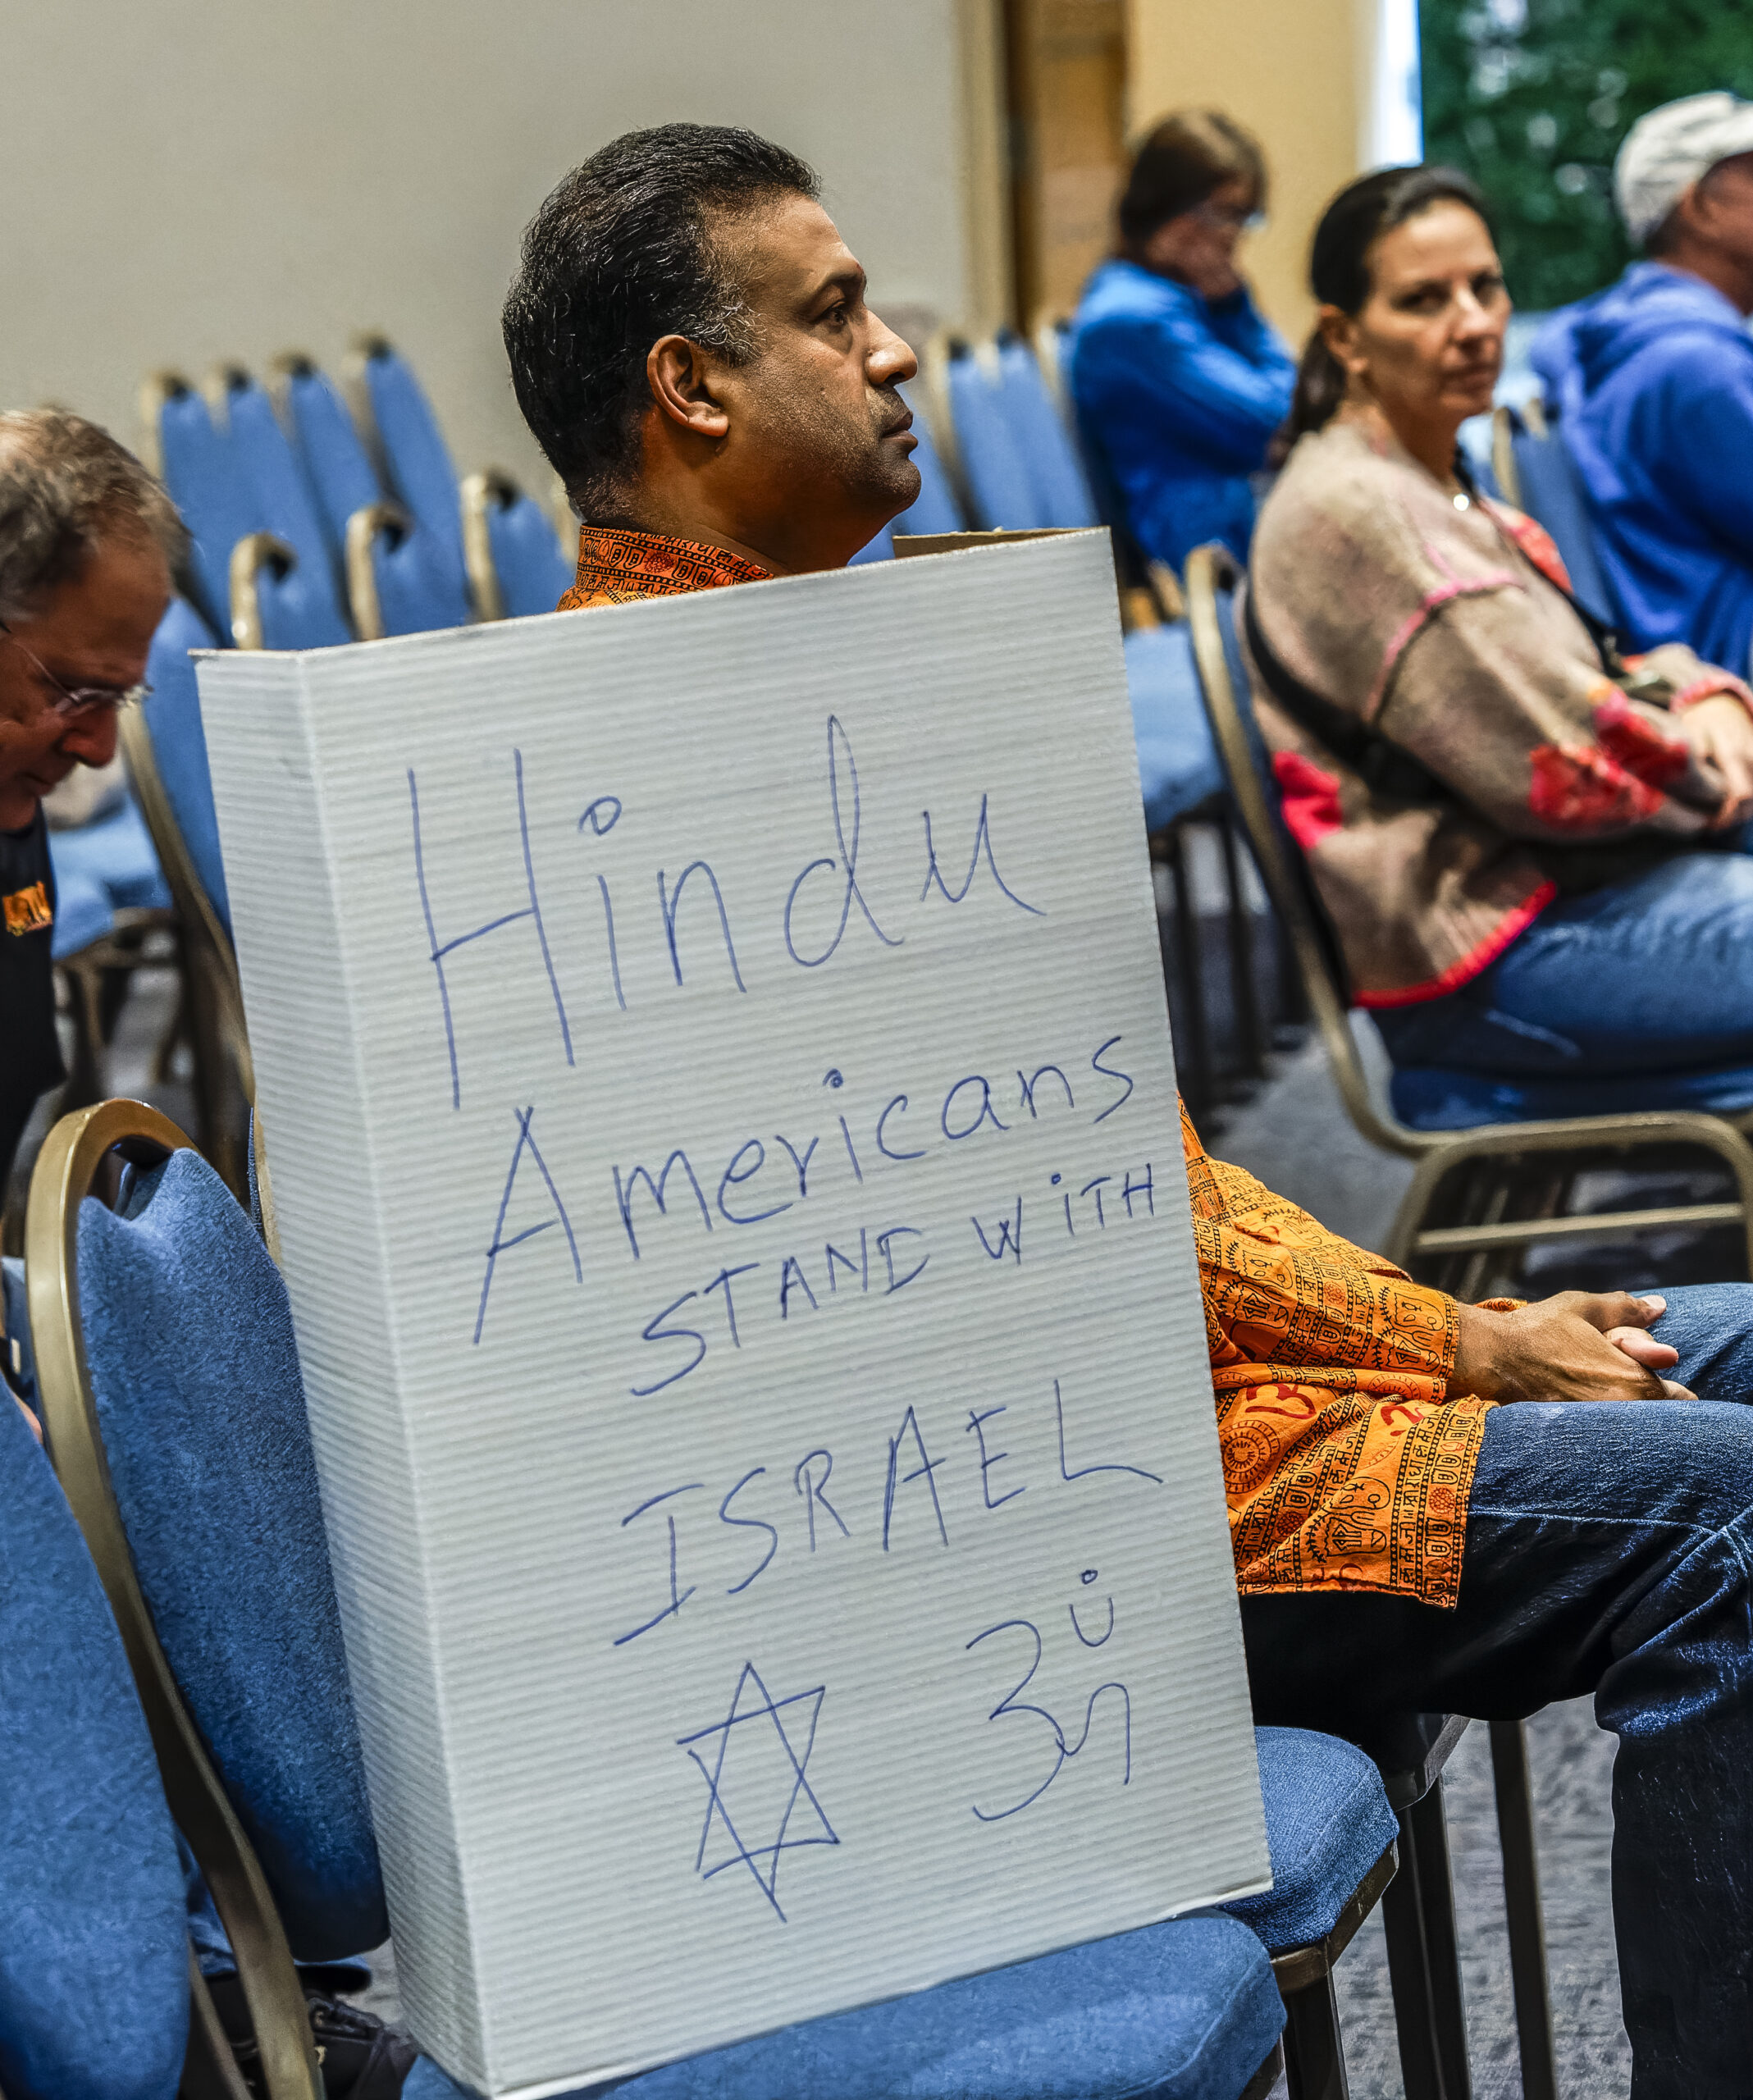 Hindu
Americans
STAND WiTH
ISRAEL
✡ ॐ